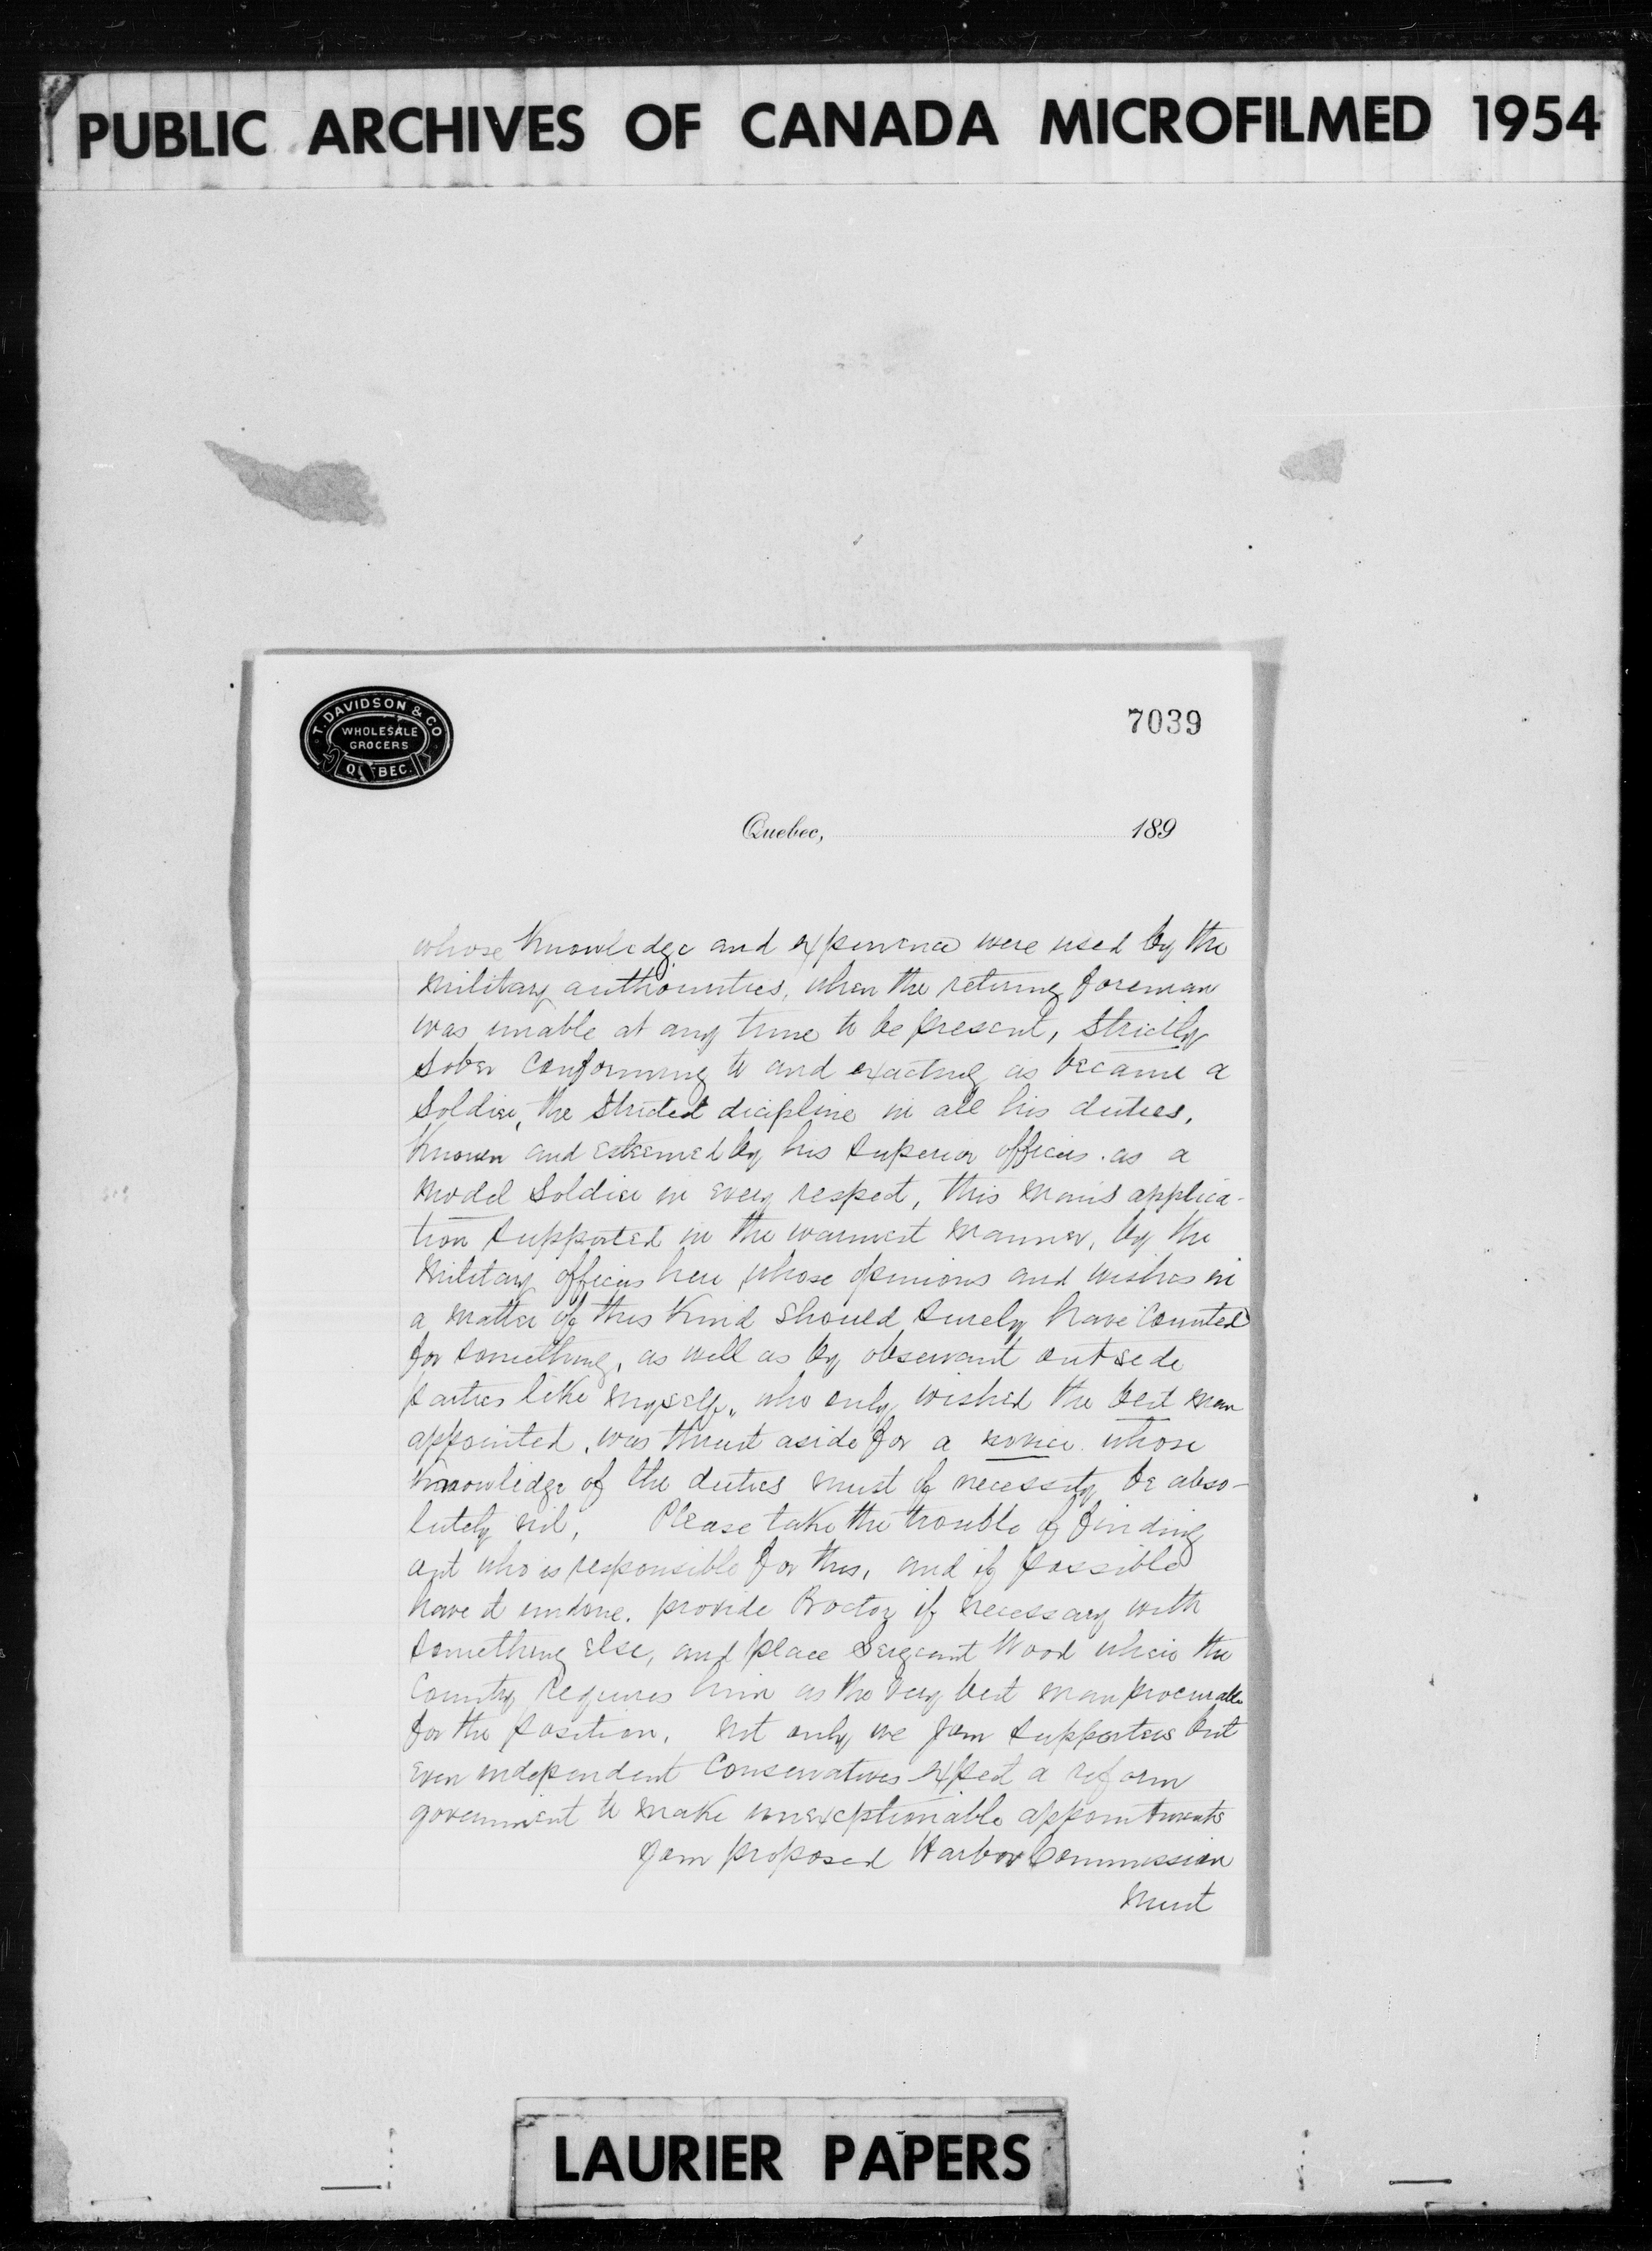 PUBLIC ARCHIVES OF CANADA MICROFILMED 1954
T. DAVIDSON & CO
WHOLESALE
GROCERS
QUEBEC.
7039
Quebec, 189
whose Knowledge and experience were used by the
Military authorities, when the retiring foreman
was unable at any time to be present, Strictly
Sober Conforming to and exacting as became a
Soldier, the Strictest dicipline in all his duties,
Known and esteemed by his Superior officers. as a
Model Soldier in every respect, this Man's applica-
tion Supported in the warmest Manner, by the
Military officers here whose opinions and wishes in
a Matter of this Kind Should Surely have Counted
for Something, as well as by observant outside
parties like Myself, who only wished the best Man
appointed, was thrust aside for a novice whose
Knowledge of the duties Must of necessity be abso-
lutely nil, Please take the trouble of finding
out who is responsible for this, and if possible
have it undone. provide Proctor if necessary with
Something else, and place Sergeant Wood where the
Country requires him as the very best Man procurable
for the position. Not only we your Supporters but
even independent Conservatives expect a reform
government to Make unexceptionable appointments
Your proposed Harbor Commission
Must
LAURIER PAPERS